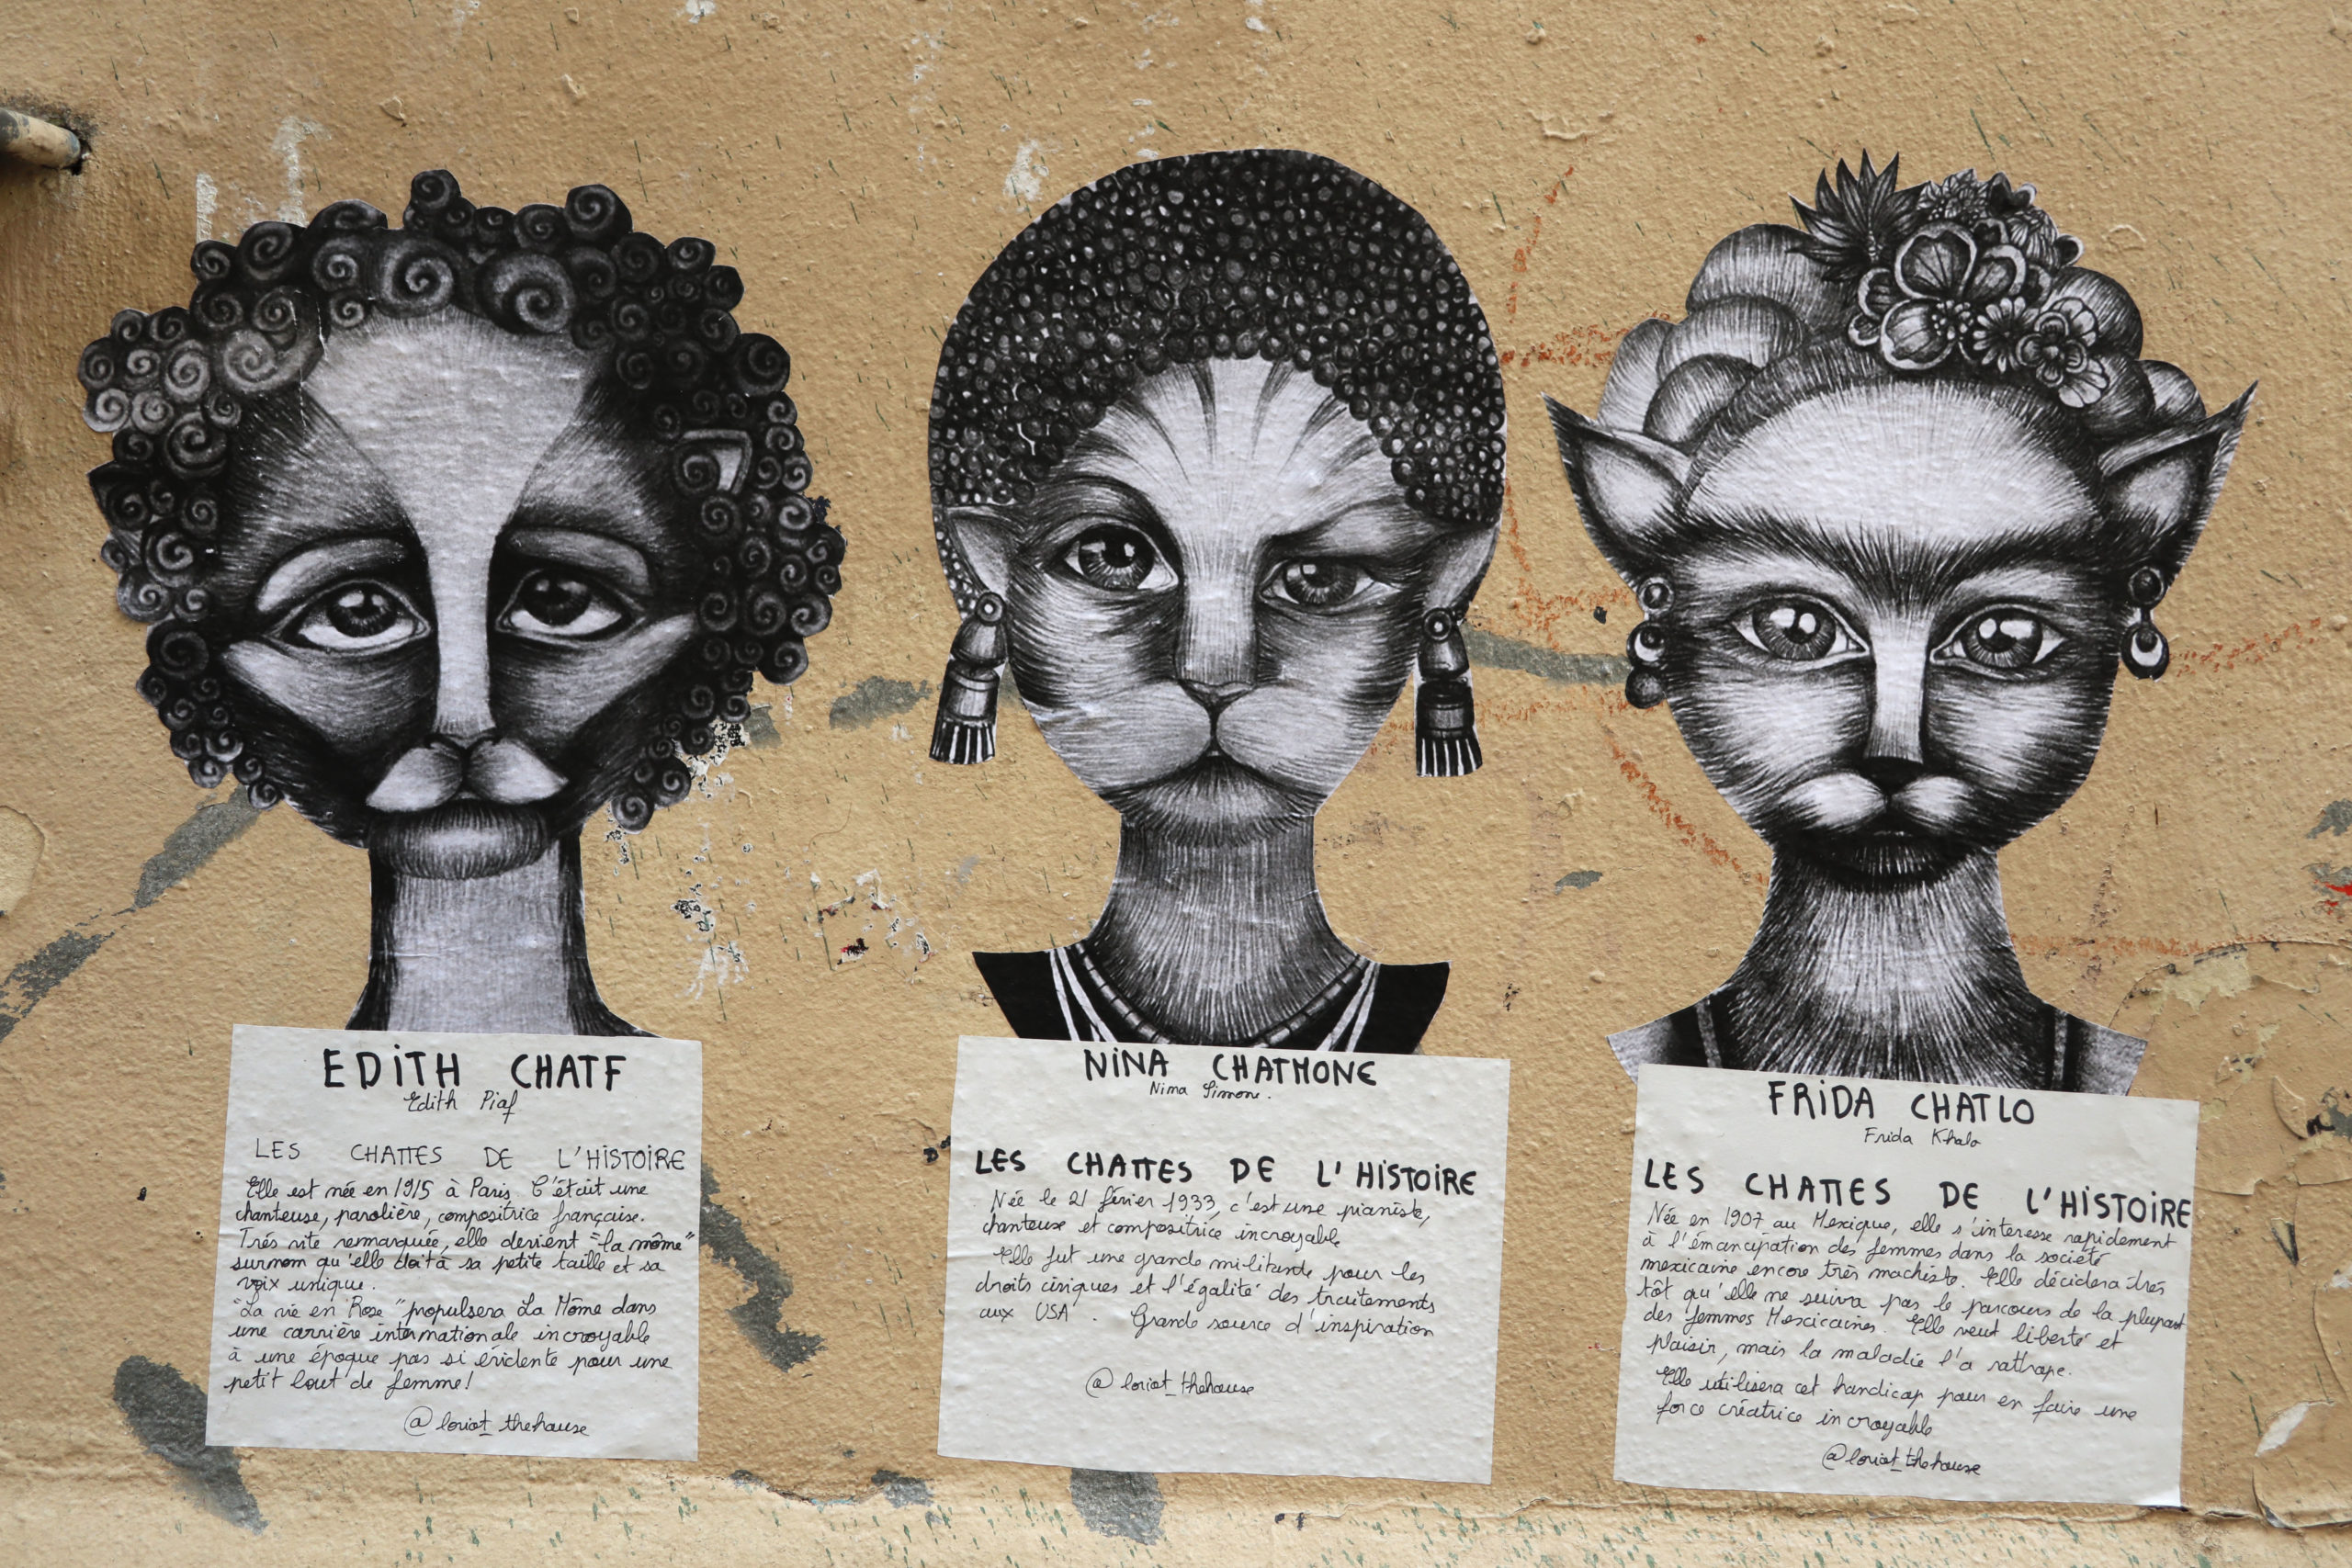 EDiTH CHATF
Edith Piaf
LES CHATTES DE L'HiSTOiRE
Elle est née en 1915 à Paris. C'était une
chanteuse, parolière, compositrice française.
Trés vite remarquée, elle devient "la môme"
surnom qu'elle doit à sa petite taille et sa
voix unique.
"La vie en Rose" propulsera La Môme dans
une carrière internationale incroyable
à une époque pas si évidente pour une
petit bout de femme!
@loriot_thehause
NiNA CHATMONE
Nina Simone.
LES CHATTES DE L'HiSTOiRE
Née le 21 février 1933, c'est une pianiste,
chanteuse et compositrice incroyable
Elle fut une grande militante pour les
droits civiques et l'égalité des traitements
aux USA. Grande source d'inspiration
@loriot_thehause
FRiDA CHATLO
Frida Khalo
LES CHATTES DE L'HiSTOiRE
Née en 1907 au Mexique, elle s'interesse rapidement
à l'émancipation des femmes dans la société
mexicaine encore très machiste. Elle décidera très
tôt qu'elle ne suivra pas le parcours de la plupart
des femmes Mexicaines. Elle veut liberté et
plaisir, mais la maladie l'a rattrape.
Elle utilisera cet handicap pour en faire une
force créatrice incroyable
@loriot_thehause